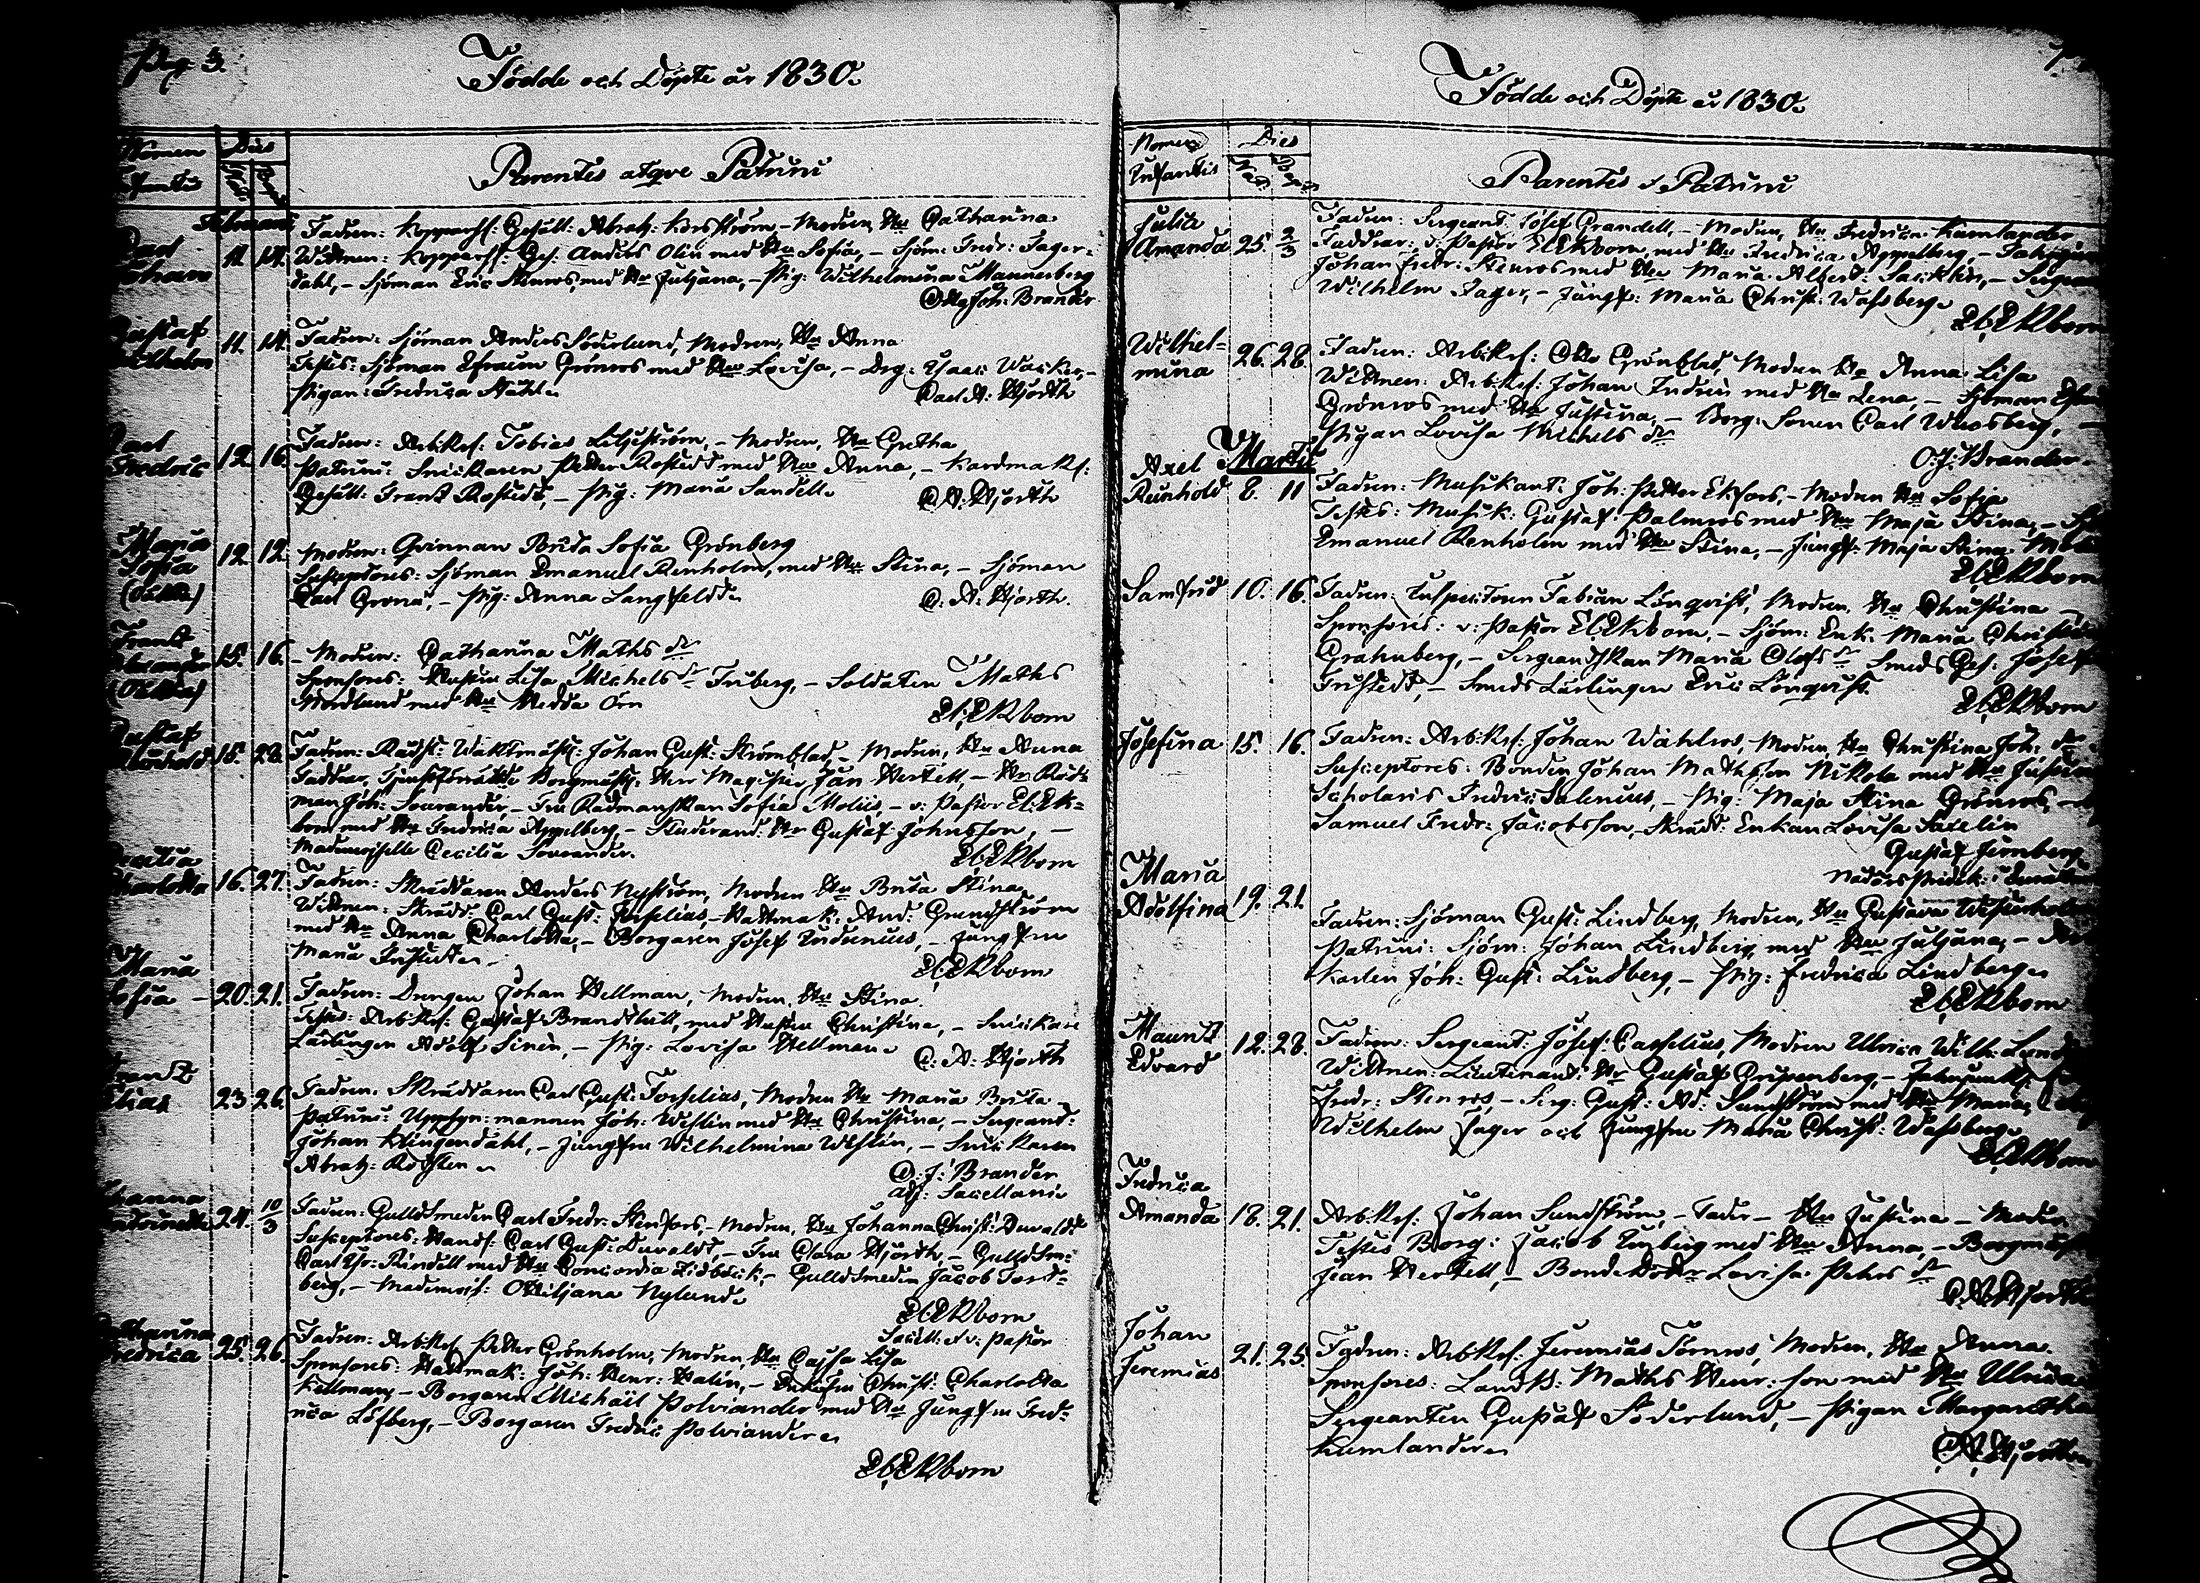 Pag. 3.
Födde och Döpte år 1830.
Nomen Dies
Parentes atqve Patrini
Februarii
Carl Johan 11. 14. Fadren: Kopparsl: Gesäll: Abrah: Korsström, – Modren, Hu Catharina
Wittnen: Kopparsl: Ges. Anders Olin med Hu Sofia, – Sjöm: Fredr: Fager-
dahl, – Sjöman Eric Stenros, med Hu Juljana, – Pig: Wilhelmina Mannerberg
Joh: Brander
Gustaf Wilhelm 11. 14. Fadren: Sjöman Anders Söderlund, Modren, Hu Anna
Testes: Sjöman Efraim Grönros med Hu Lovisa, – Drg: Isaac
Pigan: Fredrica Ståhl.
Carl A: Hjorth
Carl Fredric 12. 16. Fadren: Arb:Kr: Tobias Liljeström, – Modren, Hu Gretha
Patrini: Snickaren Petter Rostedt med Hu Anna, – Kardmak:
Gesäll: Frans Rostedt, – Pig: Maria Sandell.
C. A: Hjorth
Maria Sofia (Oäkta) 12. 12. Modren: Qvinnan Brita Sofia Grönberg
Susceptores: Sjöman Emanuel Renholm, med Hu Stina, – Sjöman
Carl Grönå, – Pig: Anna Langfeldt.
C. A: Hjorth.
Frans Alexander (Oäkta) 15. 16. – Modren: Catharina Maths dr
Sponsores: Hustru Lisa Michels dr Friberg, – Soldaten Maths
Nordlund med Hu Hedda Örn
El: Ekbom
Gustaf Reinhold 15. 28. Fadren: Rådst: Waktmäst: Johan Gust: Strömblad, – Modren, Hu Anna
Faddrar, Tjenstförrätt: Borgmäst: Herr Magister Jan Hertell, – Hr Råd-
man Joh: Sovrander, – Fru Rådmanskan Sofia Moliis, – v: Pastor El: Ek-
bom med Hu Fredrica Appelberg, – Studerand: Hr Gustaf Johnsson, –
Mademoiselle Cecilia Sovrander.
El: Ekbom
Cecilia Charlotta 16. 27. Fadren: Skräddaren Anders Nyström, Modren Hu Brita Stina
Wittnen: Skrädd: Carl Gust: Forselius, – Hattmak: And: Grundström
med Hu Anna Charlotta, – Borgaren Josef Indrenius, – Jungfru
Maria
El: Ekbom
Maria Sofia – 20. 21. Fadren: Drengen Johan Hellman, Modren, Hu Stina
Testes: Arb:Kr: Gustaf Brandstätt, med Hustru Christina, – Snickare
Lärlingen Adolf Sinén, – Pig: Lovisa Hellman.
C: A: Hjorth
Frans Elias 23. 26. Fadren: Skräddaren Carl Gust: Forselius, Modren Hu Maria Brita –
Patrini: Uppsyn:mannen Joh: Westlin med Hu Christina, – Sergeant:
Johan Klingendahl, – Jungfru Wilhelmina Westlin, – Snickaren
Abrah:
O: J: Brander
adj: Sacellani
Johanna 24. 10/3 Fadren: Gulldsmeden Carl Fredr: Stenfors, – Modren, Hu Johanna Christ: Duvaldt
Susceptores: Handl: Carl Gust: Duvaldt, – Fru Clara Hjorth, – Gulldsm:
Carl Rindell med Hu Concordia Lidbäck, – Gulldsmeden Jacob Tord-
berg, – Mademois: Ottiljana Nylund.
El: Ekbom
Sacell: et v: Pastor
Catharina Fredrica 25. 26. Fadren: Arb:Kr: Petter Grönholm, Modren, Hu Cajsa Lisa
Sponsores: Hattmak: Joh: Henr: Palin, – Christ: Charlotta
Kellman, – Borgaren Michaël Polviander med Hu Jungfru Fred-
rica Löfberg, – Borgaren Fredric Polviander.
El: Ekbom
Födde och Döpte år 1830.
Nomen Infantis Dies
Parentes & Patrini
Julia Amanda 25. 2/3 Fadren: Sergeant: Josef Grandell, – Modren, Hu Fredrica Kumlander
Faddrar: v: Pastor El: Ekbom, med Hu Fredrica Appelberg, –
Johan Fredr: Stenros med Hu Maria Albert:
Wilhelm Fager, – Jungf: Maria Christ: Wafsberg.
El: Ekbom
Wilhel-
mina 26. 28. Fadren: Arb:Kr: Otto Grönblad, Modren Hu Anna Lisa
Wittnen: Arb:Kr: Johan Indrén med Hu Lena, – Sjöman
Grönros med Hu Justina, – Borg: Sonen Carl Wersberg, –
Pigan Lovisa Michels dr
O: J: Brander.
Martii
Axel Reinhold 8. 11 Fadren: Musikant: Joh: Petter Ekfors, – Modren Hu Sofia
Testes: Musik: Gustaf Palmros med Hu Maja Stina, –
Emanuel Renholm med Hu Stina, – Jungf: Maja Stina
El: Ekbom
Samfrid 10. 16. Fadren: Inspectoren Fabian Lönqvist, Modren, Hu Christina –
Sponsores: v: Pastor El: Ekbom, – Sjöm: Enk: Maria Christina
Grahnberg, – Sergeantskan Maria Olofs dr Smeds Ges: Josef
Fristedt, – Smeds Lärlingen Eric Lönqvist.
El: Ekbom
Josefina 15. 16. Fadren: Arb:Kr: Johan Wahlros, Modren, Hu Christina Joh: dr
Susceptores: Bonden Johan Mathsson Nikola med Hu
Scholaris Fredric Salenius, – Pig: Maja Stina Grönros,
Samuel Fredr: Jacobsson, – Skrädd: Enkan Lovisa Saxelin
Gustaf Jernberg
Maria Adolfina 19. 21. Fadren: Sjöman Gust: Lindberg, Modren, Hu Gustava Westerholm
Patrini: Sjöm: Johan Lindberg, med Hu Juljana, –
Karlen Joh: Gust: Lindberg, – Pig: Fredrica Lindberg.
El: Ekbom
Maurits Edvard 12. 28. Fadren: Sergeant: Josef Caselius, Modren Ulrica Wilh:
Wittnen: Lieutenant: Hr Gustaf Gripenberg, –
Fredr: Stenros, – Serg: Gust: Ad: Sundström med Hu Maria,
Wilhelm Fager och Jungfru Maria Christ: Wafsberg.
El: Ekbom
Fredrica Amanda 18. 21. Arb:Kr: Johan Sundström, – Fader – Hu Justina – Modren
Testes Borg: Jacob Enberg med Hu Anna, –
Jean Hertell, – Bondedotter Lovisa Pehrs dr
C. A. Hjorth
Johan Jeremias 21. 25. Fadren: Arb:Kr: Jeremias Törnros, Modren, Hu Anna
Sponsores: Landb: Maths Henr: son med Hu Ulrica
Sergeanten Gustaf Söderlund, – Pigan Margaretha
Kumlander.
C. A. Hjorth